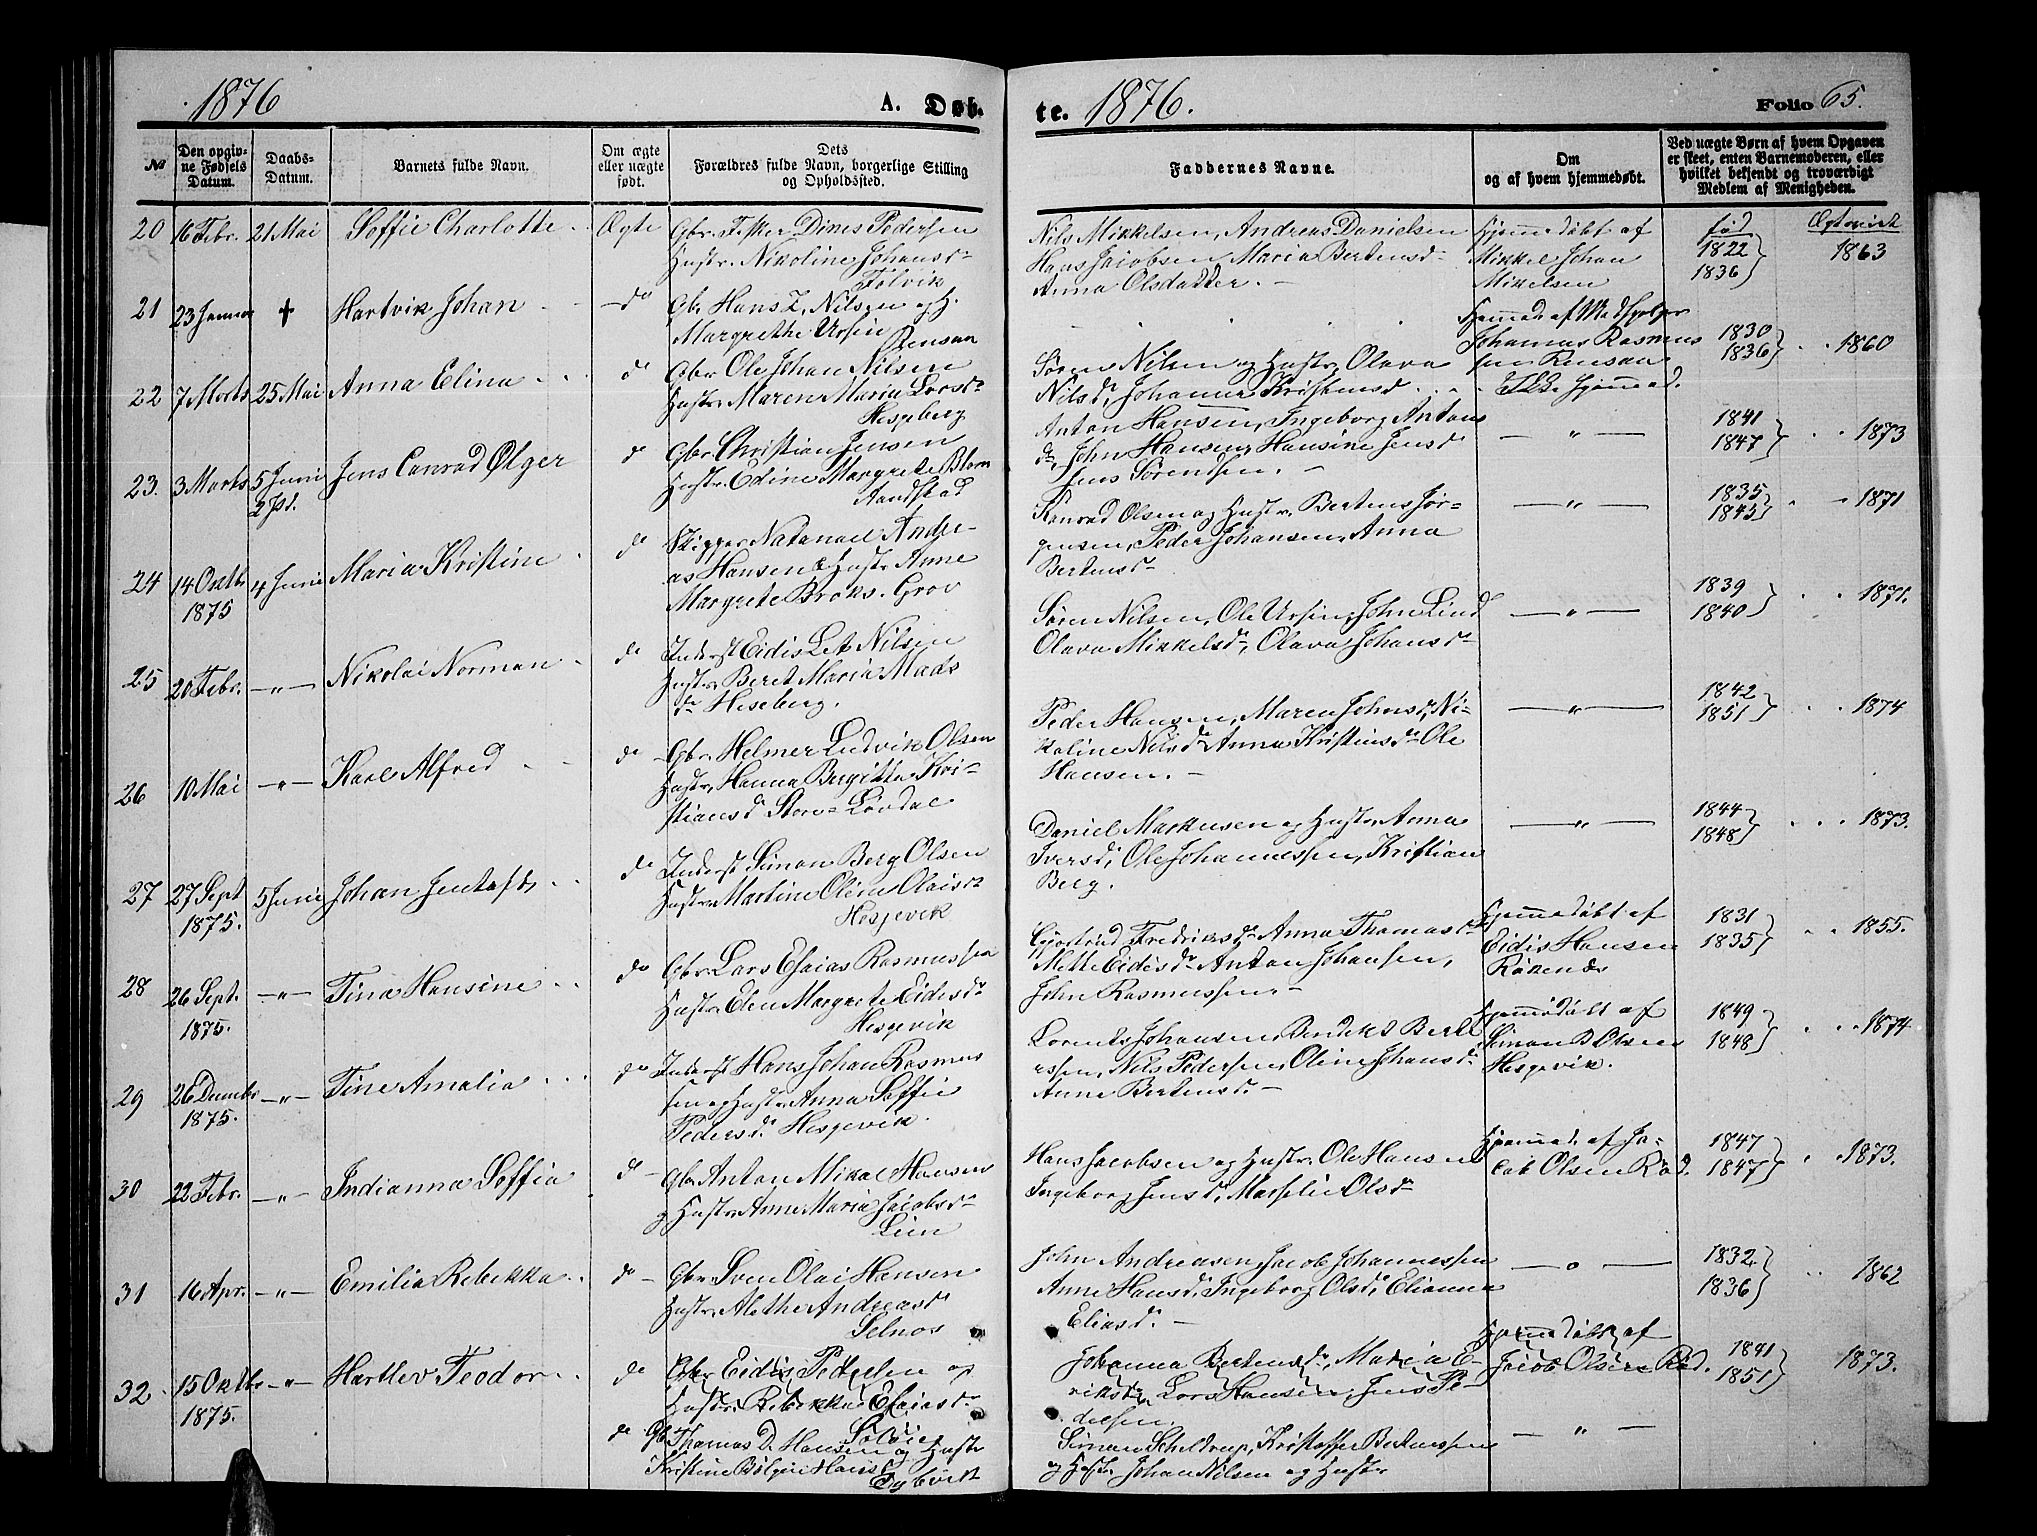 1876 A. Døb-
te. 1876. Folio 65.
No
Den opgiv-
ne Fødsels
Datum.
Daabs-
Datum.
Barnets fulde Navn.
Om ægte
eller uægte
født.
Dets
Forældres fulde Navn, borgerlige Stilling
og Opholdssted.
Faddernes Navne.
Om
og af hvem hjemmedøbt.
Ved uægte Børn af hvem Opgaven
er skeet, enten Barnemoderen, eller
hvilket bekjendt og troværdigt
Medlem af Menigheden.
20 16 Febr. 21 Mai Soffie Charlotte Ægte
Gbr. Fisker Dines Pedersen
Hustr. Nikoline Johansd
Nils Mikkelsen, Andreas Danielsen
Hans Jacobsen Maria Bertensd
Anna Olsdatter. -
Hjemmedøbt af
Mikkel Johan
Mikelsen
fød
1822
1836
1863
21 23 Januar + Hartvik Johan do
Gbr. Hans Z. Nilsen og H.
Margrethe Ursin
Rensaa
Johannes Rasmus
sen Rensaa
1830
1836 1860
22 7 Marts 25 Mai Anna Elina d
Gbr. Ole Johan Nilsen
Hustr. Maren Maria Larsd
Hesjeberg
Søren Nilsen og Hustr. Olava
Nilsd, Johanna Kristensd
Ikke hjemmed.
1841
1847 1873
23. 3 Marts 5 Juni
2 Psd.
Jens Conrad Olger d
Gbr. Christian Jensen
Hustr. Edine Margrete Blom
Sandstad
Anton Hansen, Ingeborg Antons
d, John Hansen, Hansine Jensd
Jens Sørensen. -
- " -
1835
1845 1871
24 14 Oktbr
1875
4 Juni Maria Kristine do
Skipper Natanael Andre-
as Hansen & Hustr. Anne
Margrete Broks. Grov
Konrad Olsen og Hustr. Bertens Jør-
gensen, Peder Johansen, Anna
Bertensd
- " -
1839
1840 1871.
25 20 Febr. - " - Nikolai Norman do
Inderst Eidis Let Nilsen
Hustr. Beret Maria Mads
d Heseberg.
Søren Nilsen, Ole Ursin, John Lind
Olava Mikkelsd, Olava Johansd
- " -
1842
1851 1874
26 10 Mai - " - Karl Alfred do
Gbr. Helmer Ludvik Olsen
Hustr. Hanna Bergitte Kri-
stiansd Store-Løvdal
Peder Hansen, Maren Johnsd, Ni-
koline Nilsd Anna Kristiusd Ole
Hansen. -
- " -
1844
1848 1873.
27 27 Sept
1875.
5 Juni Johan do
Inderst Simon Berg Olsen
Hustr. Martine Oline Olaisd
Hesjevik
Daniel Markusen og Hustr. Anna
Iversd, Ole Johannessen, Kristian
Berg.
Hjemmedøbt af
Eidis Hansen
Røkenes
1831
1835 1855.
28 26 Sept.
1875.
- " - Tina Hansine do
Gbr. Lars Esaias Rasmussen
Hustr. Elen Margrete Eidisd
Hesjevik
Gjertrud Fredriksd Anna Thomasd
Mette Eidisd Anton Johansen,
John Rasmussen. -
Hjemmedøbt af
Simon B Olsen
Hesjevik.
1849
1848 1874
29 26 Decmbr
1875.
- " - Tine Amalia do
Inderst Hans Johan Rasmus
sen og Hustr. Anna Soffie
Pedersd. Hesjevik.
Lorents Johansen, Bendikt Bert
essen, Nils Pedersen, Oline Johansd
Anne Bertensd -
Hjemmed. af Ja-
cob Olsen Rød.
1847
1847 1873.
30 22 Febr. - " - Indianna Soffia d
Gbr. Anton Mikal Hansen
og Hustr. Anne Maria Jacobsd
Lien
Hans Jacobsen og Hustr. Ole Hansen
Ingeborg Jensd, Marselie Olsd
- " -
1832
1836 1862
31 16 Apr. - " - Emilia Rebekka do
Gbr. Sven Olai Hansen
Hustr. Alethe Andreasd
Selnes
John Andreasen, Jacob Johannessen
Anne Hansd, Ingeborg Olsd, Elianna
Eliasd. -
Hjemmedøbt af
Jacob Olsen Rød.
1841
1851 1873.
32. 15 Oktbr
1875.
- " - Hartlev Teodor do
Gbr. Eidis Pedersen og
Hustr. Rebekka Esaiasd
Johanna Bertensd, Maria E-
riksd, Lars Hansen, Jens Pe-
dersen.
do Gb. Thomas D. Hansen og Hustr
Kristine
Simon Scheldrup, Kristoffer Bertnessen
og Hustr. Johan Nilsen og Hustr
- " -